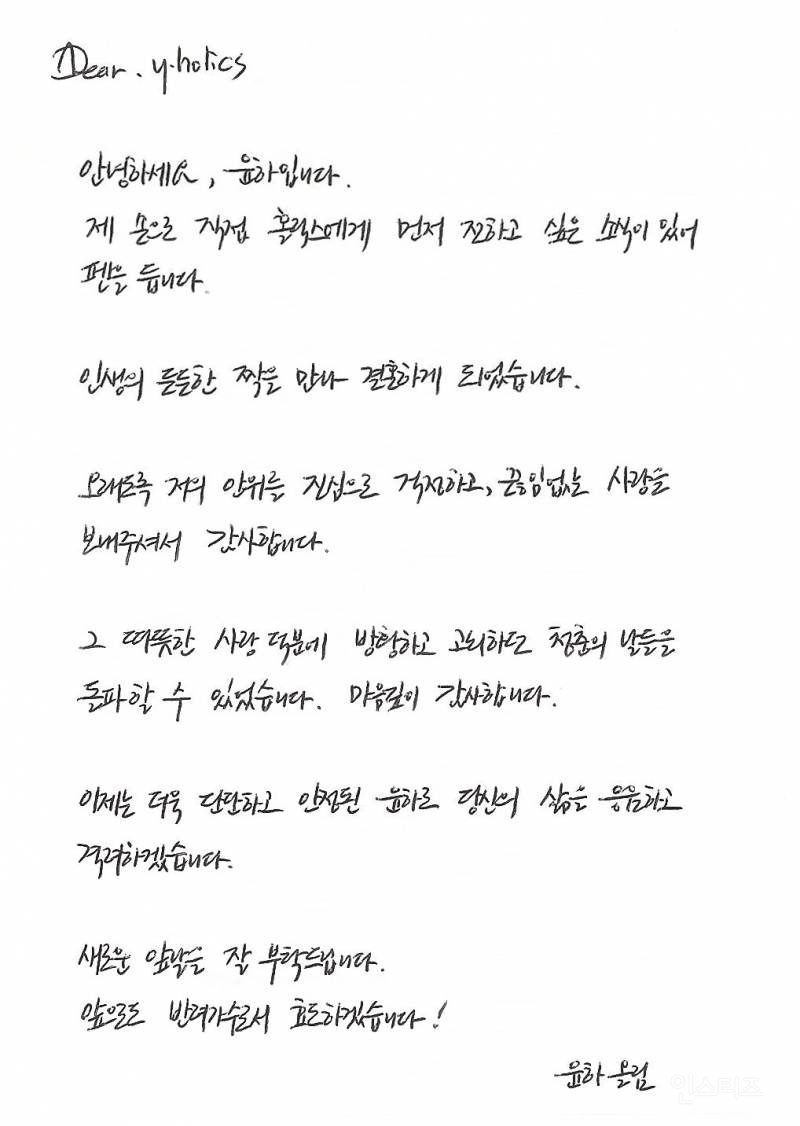 Dear. y.holics
안녕하세요, 윤하입니다.
제 손으로 직접 홀릭스에게 먼저 전하고 싶은 소식이 있어
펜을 듭니다.
인생의 든든한 짝을 만나 결혼하게 되었습니다.
오래도록 저의 안위를 진심으로 걱정하고, 끊임없는 사랑을
보내주셔서 감사합니다.
그 따뜻한 사랑 덕분에 방황하고 고뇌하던 청춘의 날들을
돌파할 수 있었습니다. 마음깊이 감사합니다.
이제는 더욱 단단하고 안정된 윤하로 당신의 삶을 응원하고
격려하겠습니다.
새로운 앞날을 잘 부탁드립니다.
앞으로도 반려가수로서 효도하겠습니다!
윤하 올림
인스티즈